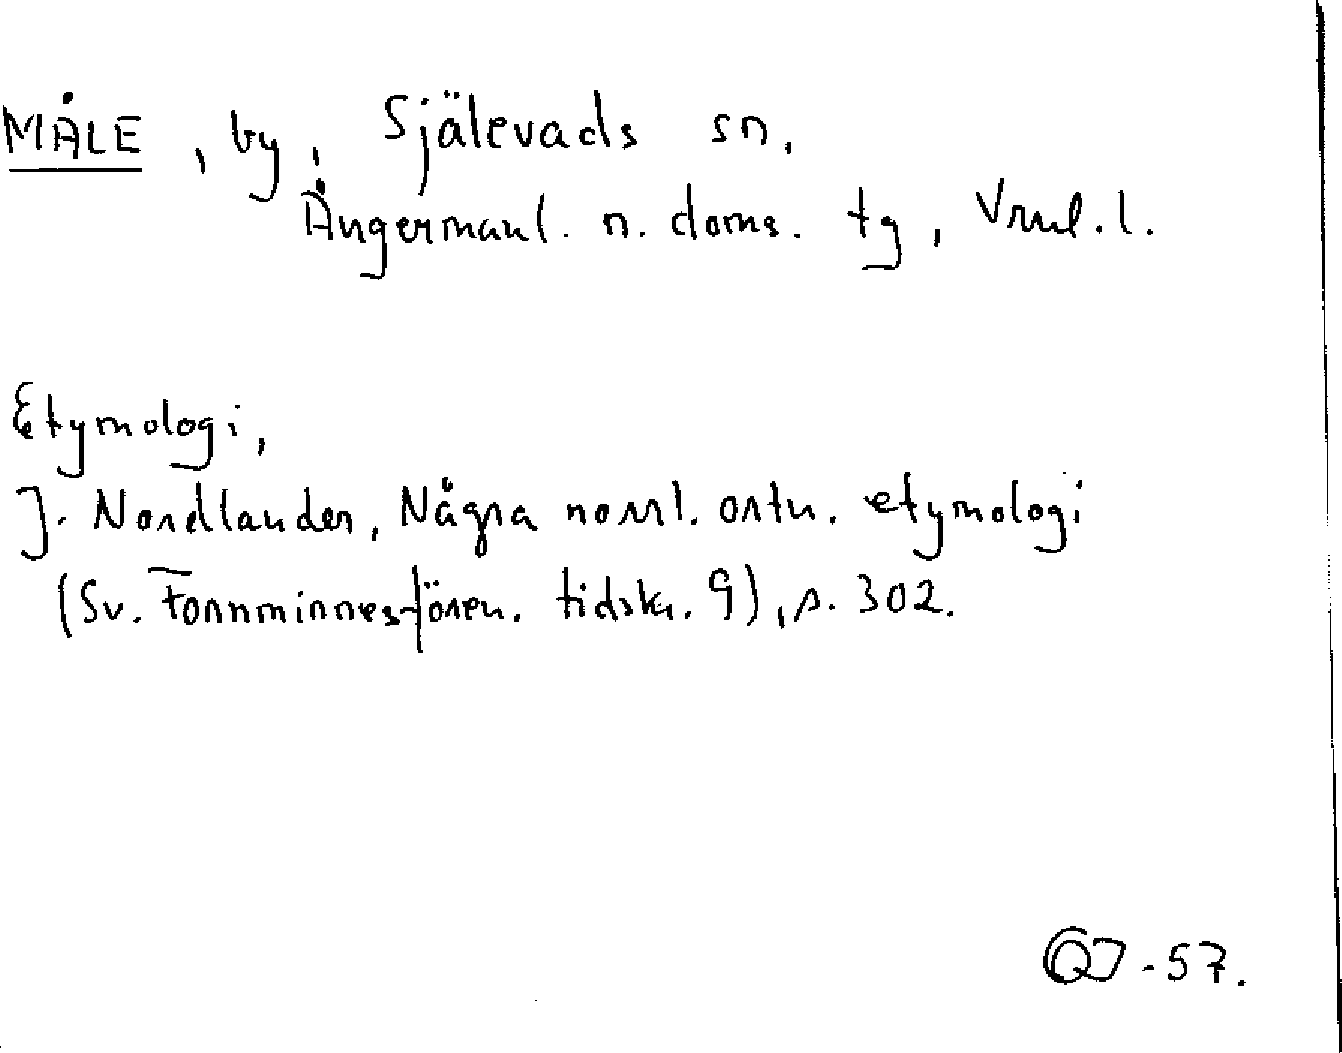 MÅLE, by, Själevads sn.
Ångermanl. n. doms. tg, Vrnl. l.
Etymologi,
J. Nordlander, Några norrl. ortn. etymologi
(Sv. Fornminnesfören. tidskr. 9), s. 302.
-57.